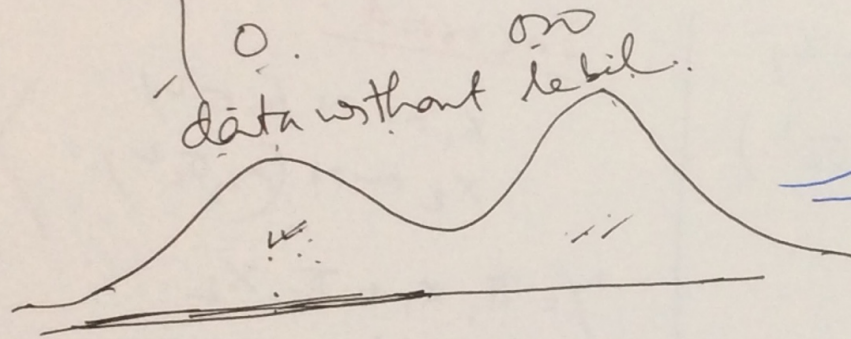 data without lebil.